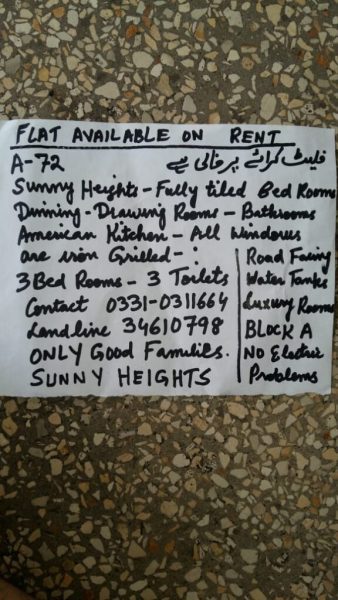 FLAT AVAILABLE ON RENT
A-72 فلیٹ کرائے پر خالی ہے
Sunny Heights - Fully tiled Bed Rooms
Dinning - Drawing Rooms - Bathrooms
American Kitchen - All Windows
are iron Grilled - :
3 Bed Rooms - 3 Toilets
Contact 0331-0311664
Landline 34610798
ONLY Good Families.
SUNNY HEIGHTS
Road Facing
Water Tanks
Luxury Rooms
BLOCK A
NO Electric
Problems